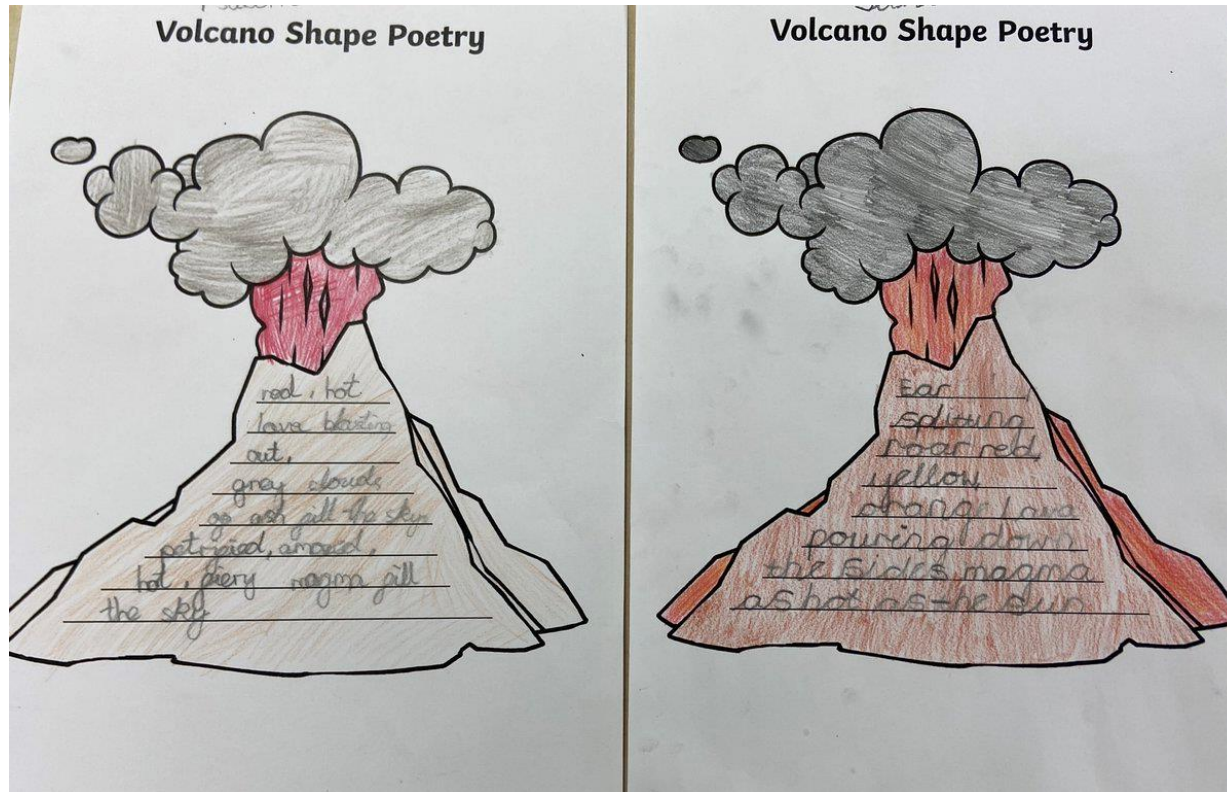 Volcano Shape Poetry
red, hot
lava blasting
out,
grey clouds
go ash fill the sky
petrified, amazed,
hot, fiery magma fill
the sky
Volcano Shape Poetry
Ear
splitting
roar red
yellow
orange Lava
pouring down
the Sides magma
as hot as the sun